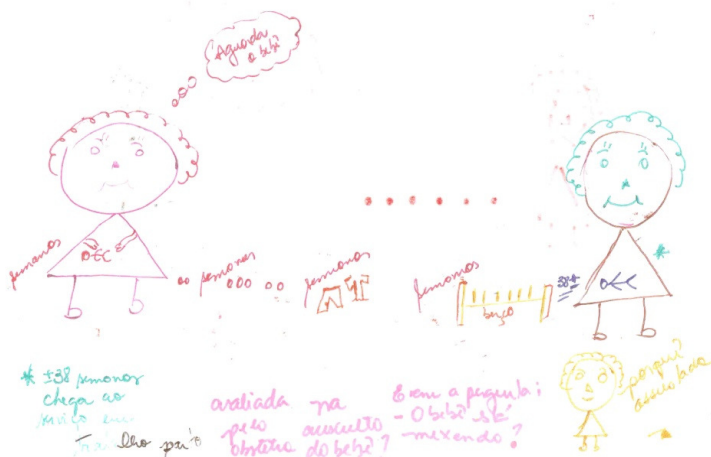 Aguarda
o bebê
semanas
semanas
semanas
semanas
berço
* ±38 semanas
chega ao
serviço em
avaliada na
pelo ausculta
obstetra do bebê?
E vem a pergunta:
- O bebê stá
- mexendo?
porquê?
assustada